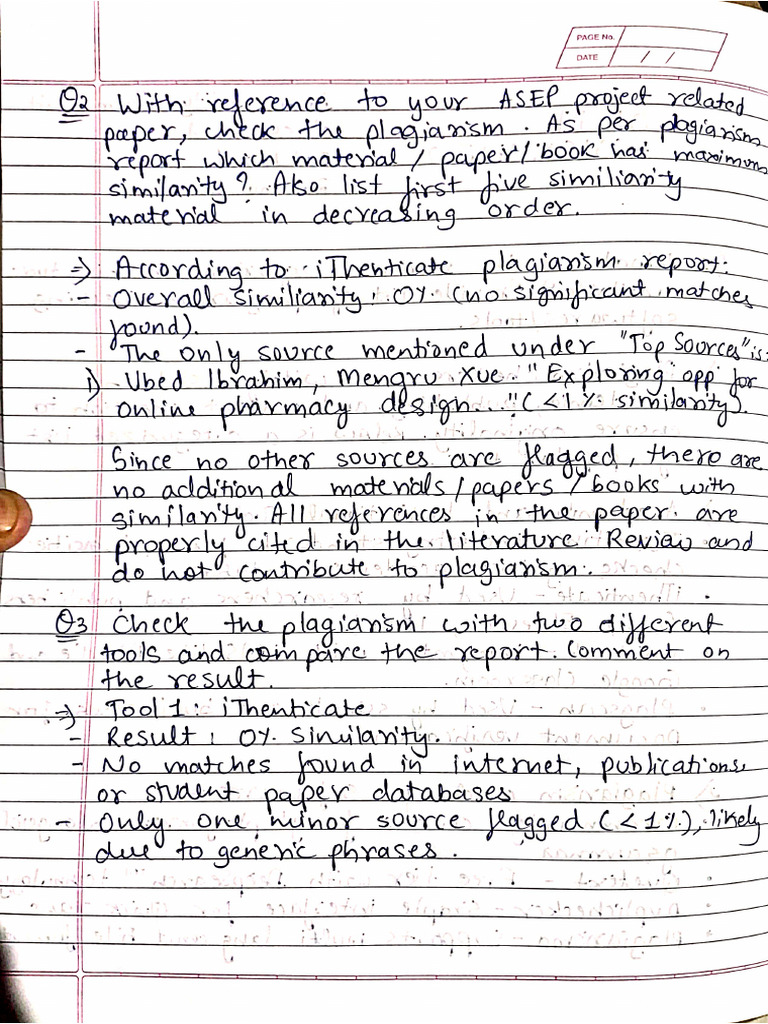 PAGE No.
DATE / /
Q2 With reference to your ASEP project related
paper, check the plagiarism. As per plagiarism
report which material / paper / book has maximum
similarity? Also list first five similiarity
material in decreasing order.
⇒ According to iThenticate plagiarism report:
- Overall similiarity: 0% (no significant matches
found).
- The only source mentioned under "Top Sources" is:
i) Ubed Ibrahim, Mengru Xue. "Exploring app for
online pharmacy design..." (<1% similarity).
Since no other sources are flagged, there are
no additional materials / papers / books with
similarity. All references in the paper are
properly cited in the literature Review and
do not contribute to plagiarism.
Q3 Check the plagiarism with two different
tools and compare the report. Comment on
the result.
⇒ Tool 1: iThenticate
- Result: 0% Similarity.
- No matches found in internet, publications
or student paper databases
- Only one minor source flagged (<1%), likely
due to generic phrases.